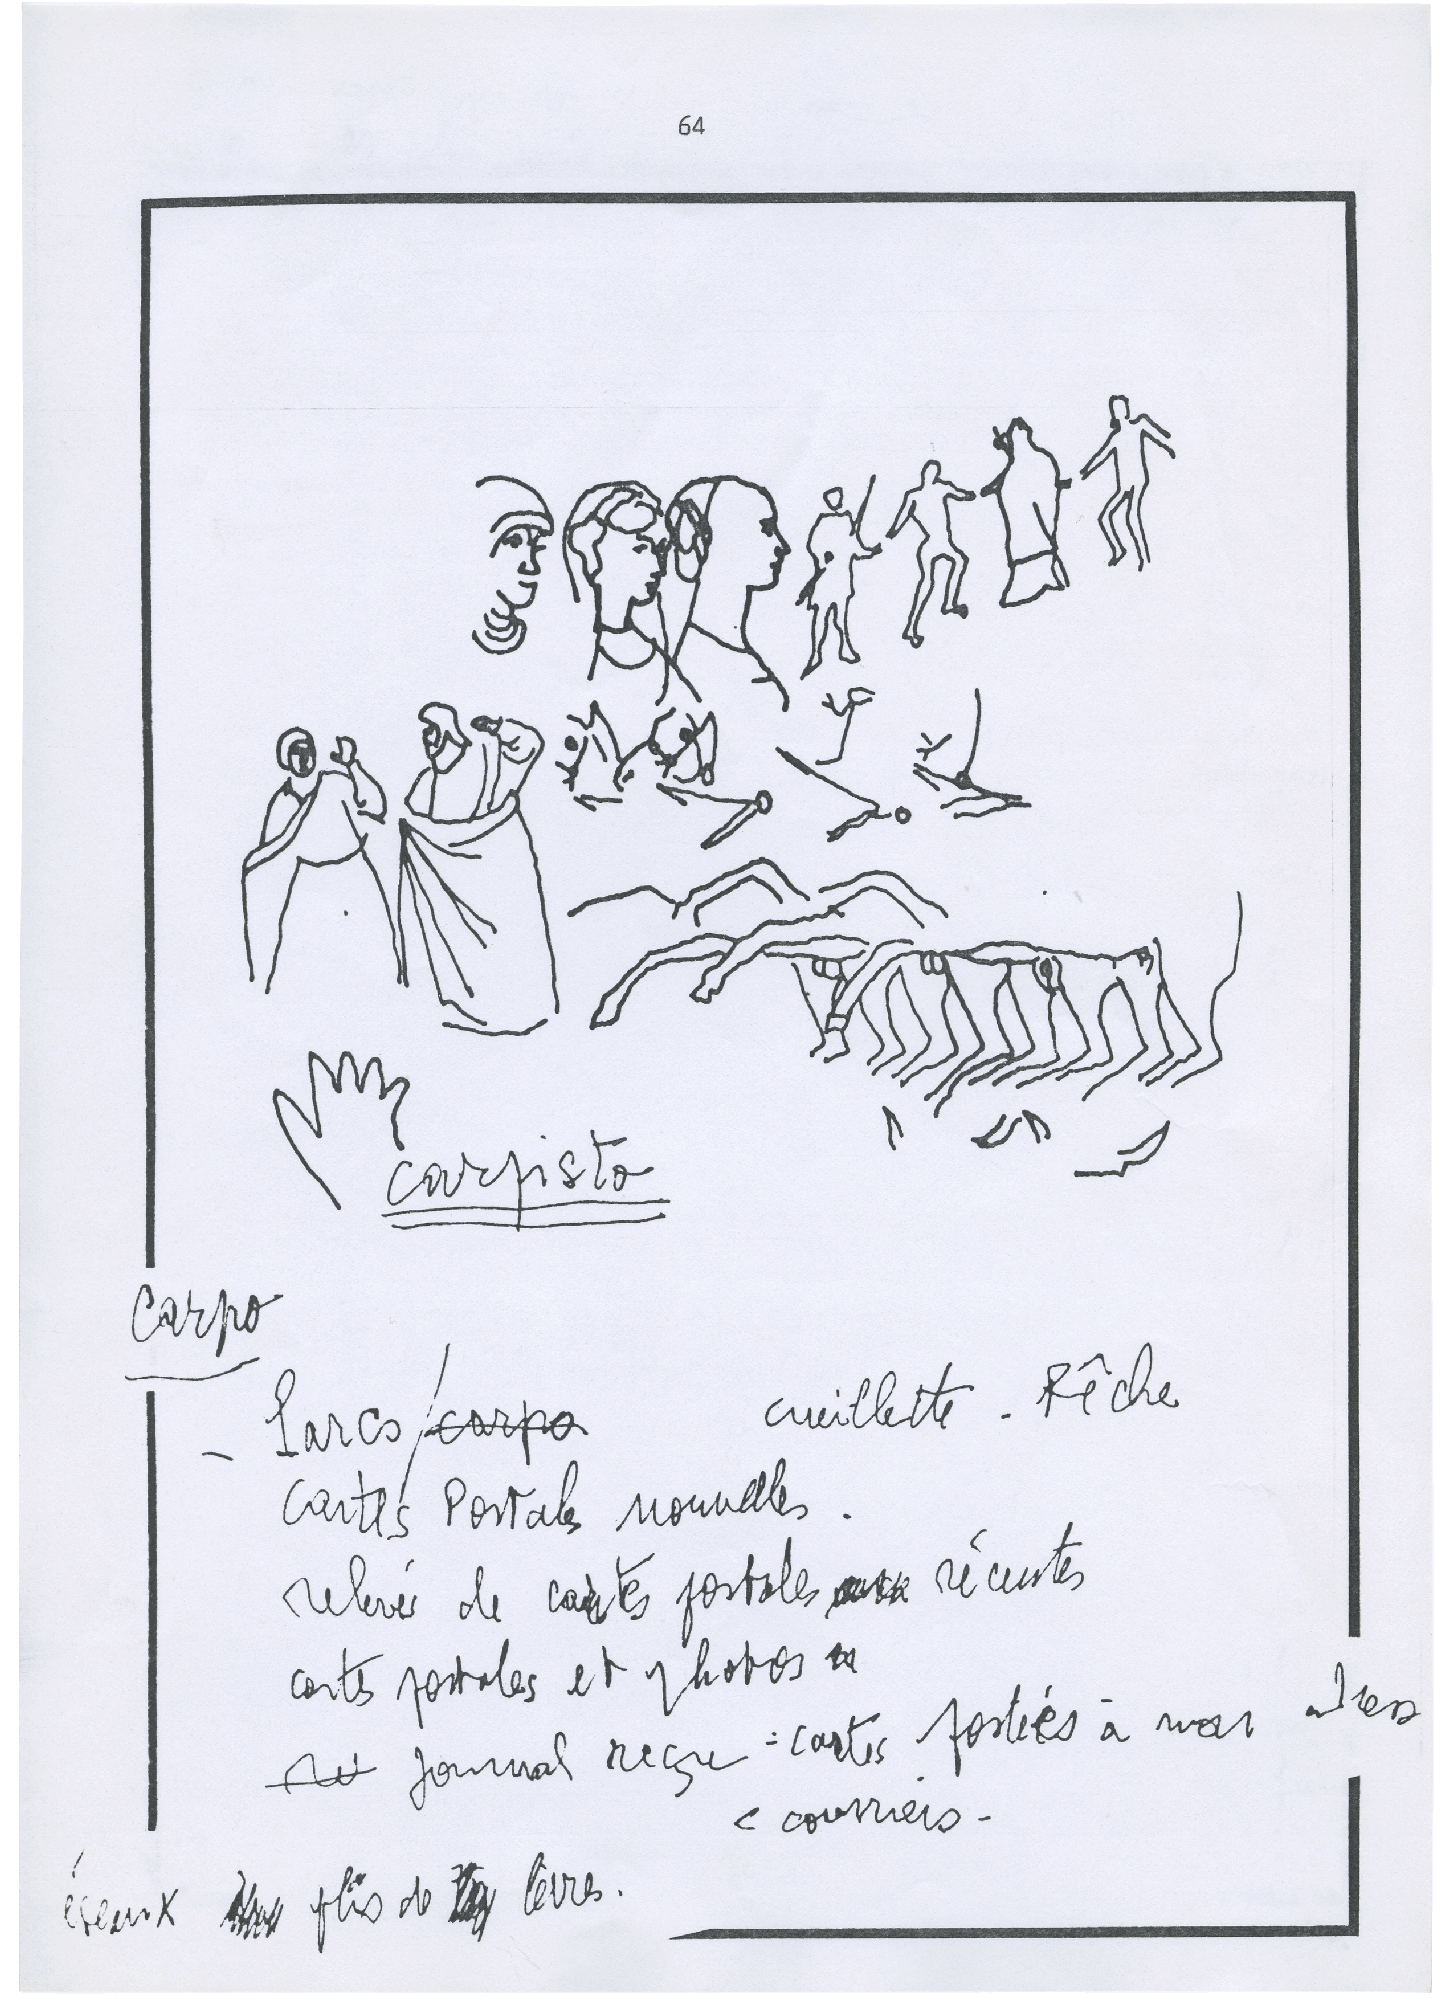 64
carpisto
Carpo
- Larco / carpo cueillette - Rêche
Cartes Postales nouvelles.
relevés de cartes postales récentes
cartes postales et photos
journal reçu = cartes postées à mon adresse
< courriers -
plis de lèvres.